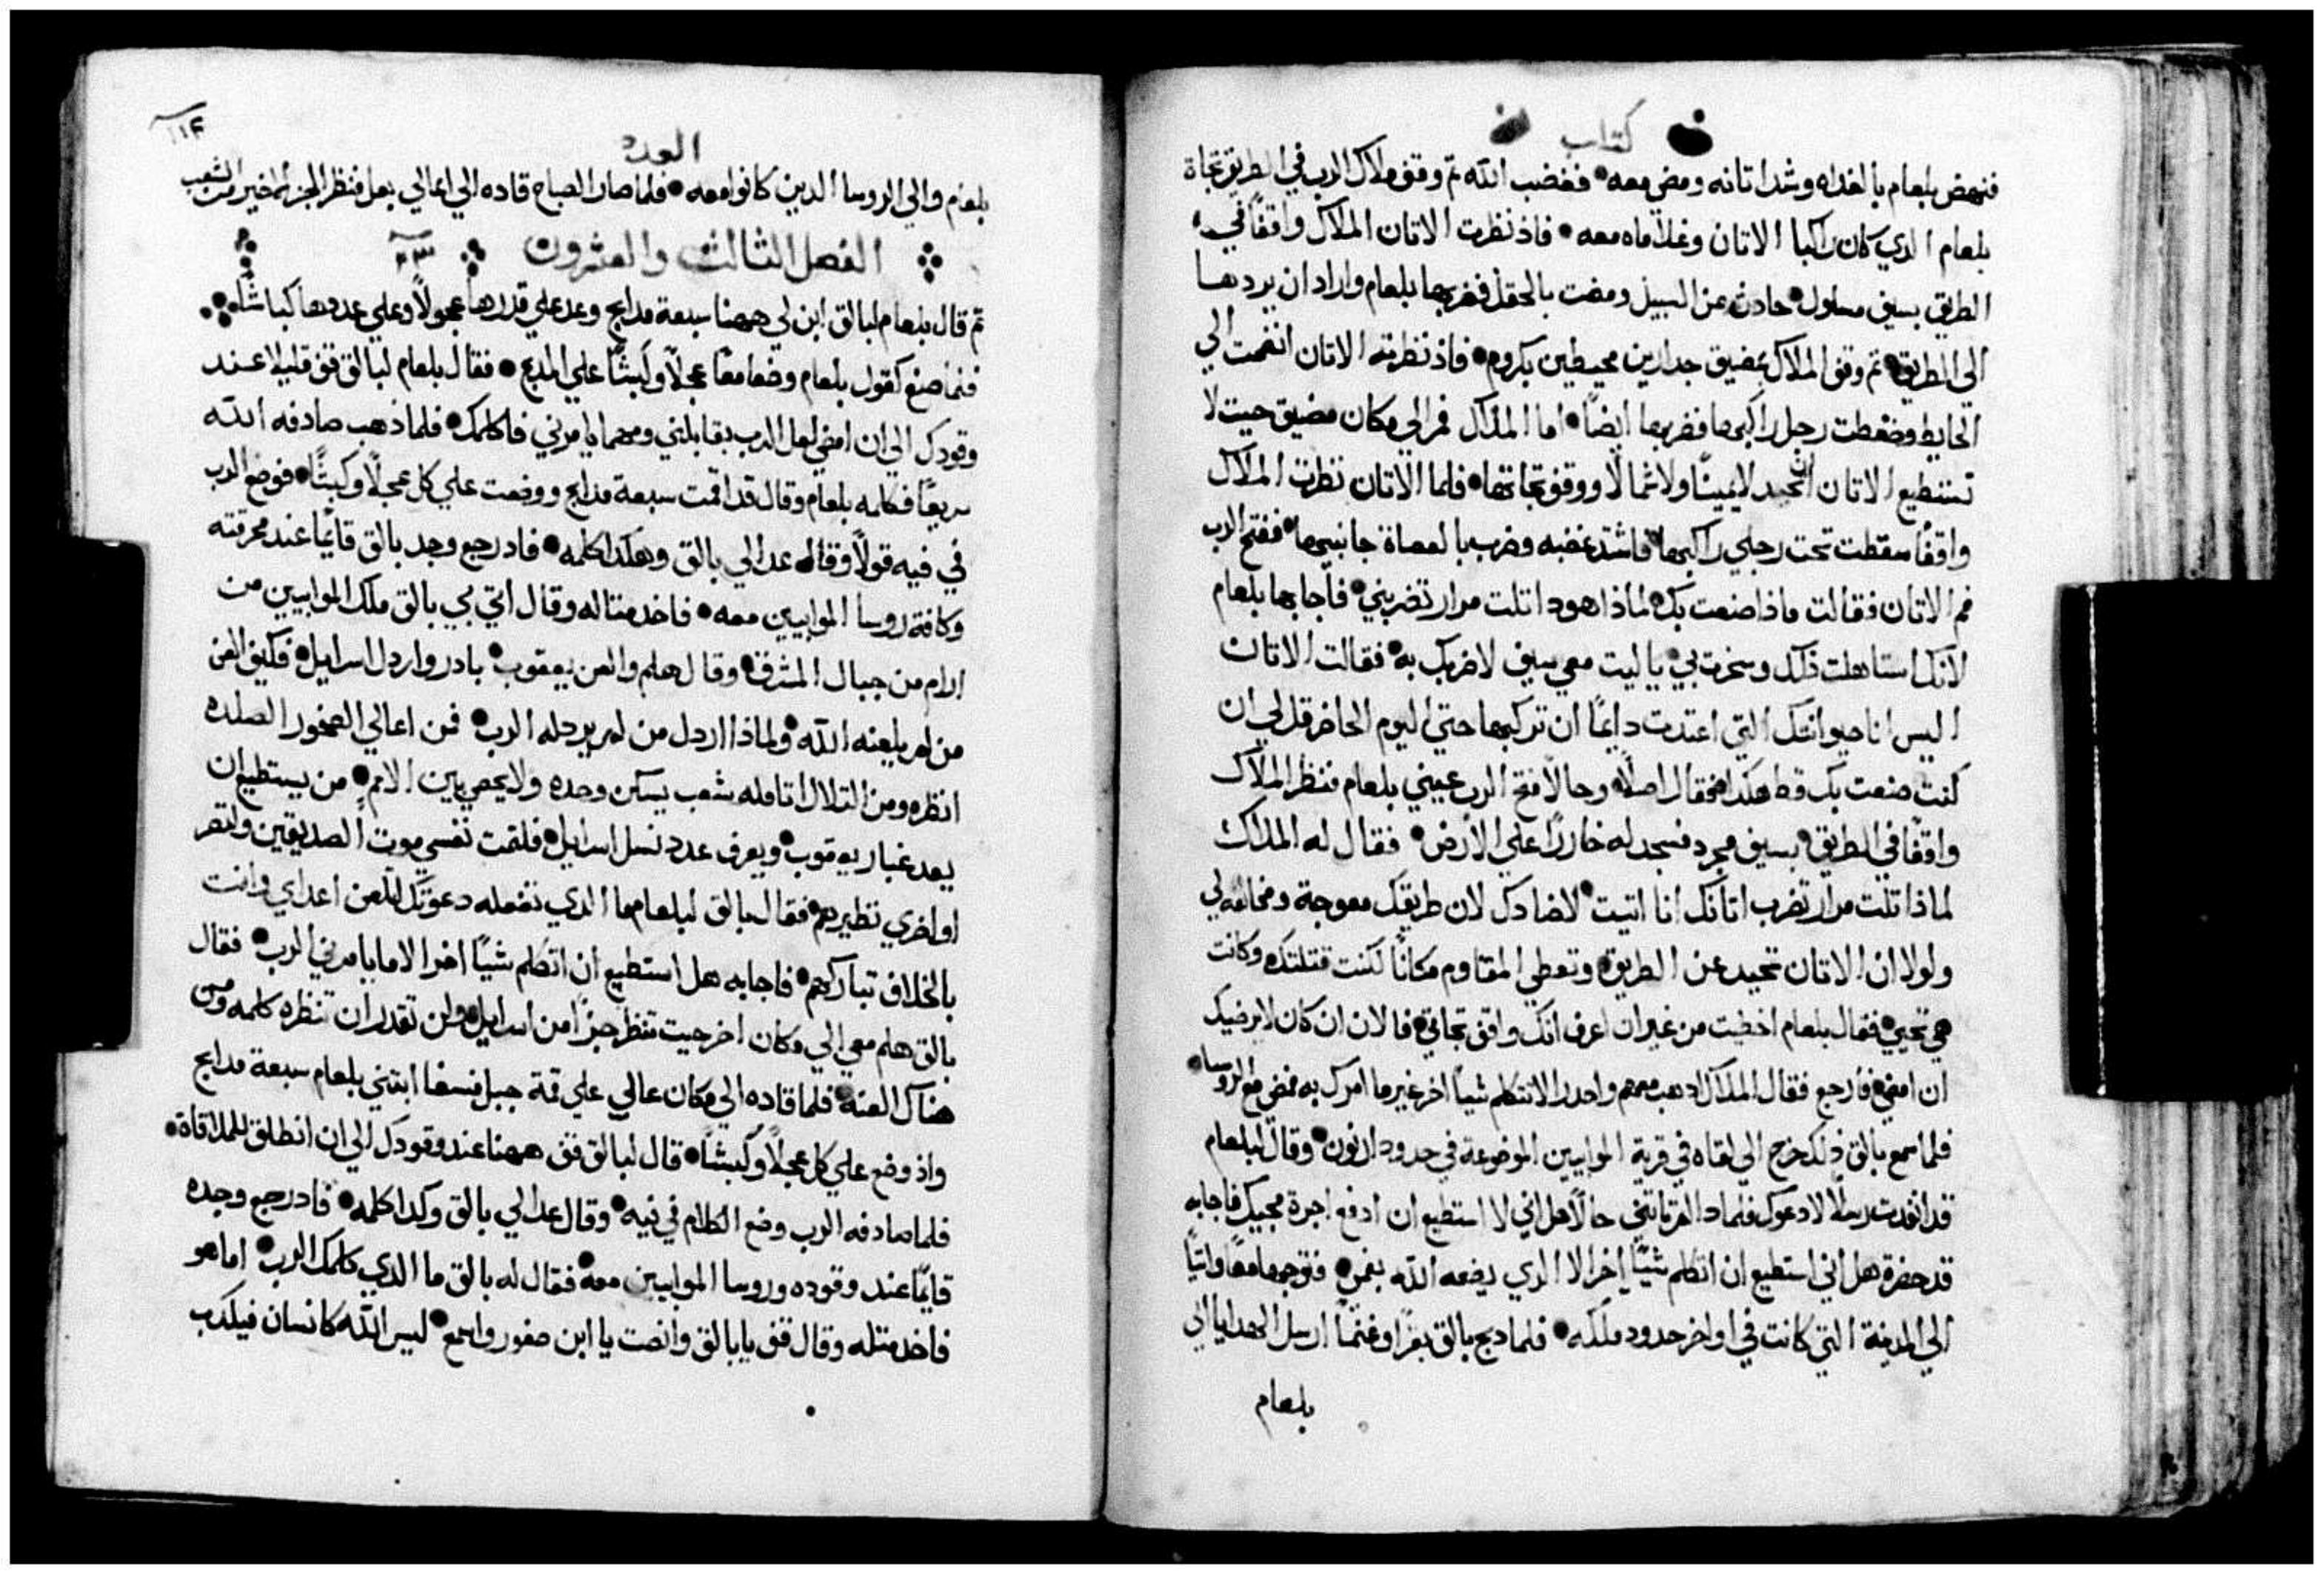 كتاب
فنهض بلعام بالغداه وشد اتانه ومضي معه فغضب الله تم وقف ملاك الرب في الطريق تجاة
بلعام الدي كان راكبا الاتان وغلاماه معه فاذ نظرت الاتان الملاك واقفًا في
الطريق بسيف مسلول حادت عن السبيل ومضت بالحقل فضربها بلعام واراد ان يردها
الي الطريق تم وقف الملاك بمضيق جدارين محيطين بكروم فاذ نظرته الاتان انضمت الي
الحايط وضغطت رجل راكبها فضربها ايضًا اما الملاك فمر الي مكان مضيق حيت لا
تستطيع الاتان ان تحيد لا يمينًا ولا شمالًا ووقف تجاتها فلما الاتان نظرت الملاك
واقفًا سقطت تحت رجلي راكبها فاشتد غضبه وضرب بالعصاة جانبيها ففتح الرب
فم الاتان فقالت ماذا صنعت بك لماذا هودا تلت مرار تضربني فاجابها بلعام
لانك استاهلت ذلك وسخرت بي يا ليت معي سيف لاضربك به فقالت الاتان
اليس انا حيوانتك التي اعتدت دايمًا ان تركبها حتي اليوم الحاضر قل لي ان
كنت صنعت بك قط هكدا فقال اصلًا وحالًا فتح الرب عيني بلعام فنظر الملاك
واقفًا في الطريق بسيف مجرد فسجد له خاررًا علي الارض فقال له الملاك
لماذا تلت مرار تضرب اتانك انا اتيت لاضادك لان طريقك معوجة ومخالفه لي
ولولا ان الاتان تحيد عن الطريق وتعطي المقاوم مكانًا لكنت قتلتك وكانت
هي تحيي فقال بلعام اخطيت من غير ان اعرف انك واقف تجاتي فالان ان كان لا يرضيك
ان امضي فارجع فقال الملاك ادهب معهم واحدر الا تتكلم شيًا اخر غير ما امرك به فمضي مع الروسا
فلما سمع بالق ذلك خرج الي لقاه في قرية الموابيين الموضوعة في حدود ارنون وقال لبلعام
قد انفدت رسلًا لادعوك فلماذا لم تاتني حالًا هل اني لا استطيع ان ادفع اجرة مجيك فاجابه
قد حضرة هل اني استطيع ان اتكلم شيًا اخر الا الدي يضعه الله بفمي فتوجها معًا واتيا
الي المدينة التي كانت في اواخر حدود ملكه فلما دبح بالق بقرًا وغنمًا ارسل الهدايا الي
بلعام
العدد
بلعام والي الروسا الدين كانوا معه فلما صار الصباح قاده الي اعالي بعل فنظر الجز الاخير من الشعب
الفصل الثالث والعشرون ٢٣
تم قال بلعام لبالق ابن لي ههنا سبعة مدابح وعد علي قدرها عجولًا وعلي عددها كباشًا
فلما صنع كقول بلعام وضعا معًا عجلًا وكبشًا علي المدبح فقال بلعام لبالق قف قليلا عند
وقودك الي ان امضي لعل الرب يقابلني ومهما يامرني فاكلمك فلما ذهب صادفه الله
سريعًا فكلمه بلعام وقال قد اقمت سبعة مدابح ووضعت علي كل عجلًا وكبشًا فوضع الرب
في فيه قولًا وقال عد الي بالق وهكدا كلمه فاد رجع وجد بالق قايمًا عند محرقته
وكافة روسا الموابيين معه فاخد متاله وقال اتي بي بالق ملك الموابيين من
ارام من جبال المشرق وقال هلم والعن يعقوب بادر واردل اسرايل فكيف العن
من لم يلعنه الله ولماذا اردل من لم يردله الرب فمن اعالي الصخور الصلده
انظره ومن التلال اتامله شعب يسكن وحده ولا يحصي بين الامم من يستطيع ان
يعد غبار يعقوب ويعرف عدد نسل اسرايل فلتمت نفسي موت الصديقين ولتصر
اواخري نظيرهم فقال بالق لبلعام ما الدي تفعله دعوتك لتلعن اعداي وانت
بالخلاف تباركهم فاجابه هل استطيع ان اتكلم شيًا اخر الا ما يامرني الرب فقال
بالق هلم معي الي مكان اخر حيت تنظر جزًا من اسرايل ولن تقدر ان تنظره كله ومن
هناك العنه فلما قاده الي مكان عالي علي قمة جبل فسغا ابتني بلعام سبعة مدابح
واذ وضع علي كل عجلًا وكبشًا قال لبالق قف ههنا عند وقودك الي ان انطلق للملاقاة
فلما صادفه الرب وضع الكلام في فيه وقال عد الي بالق وكدا كلمه فاد رجع وجده
قايمًا عند وقوده وروسا الموابيين معه فقال له بالق ما الدي كلمك الرب اما هو
فاخد متله وقال قف يا بالق وانصت يا ابن صفور واسمع ليس الله كانسان فيكدب